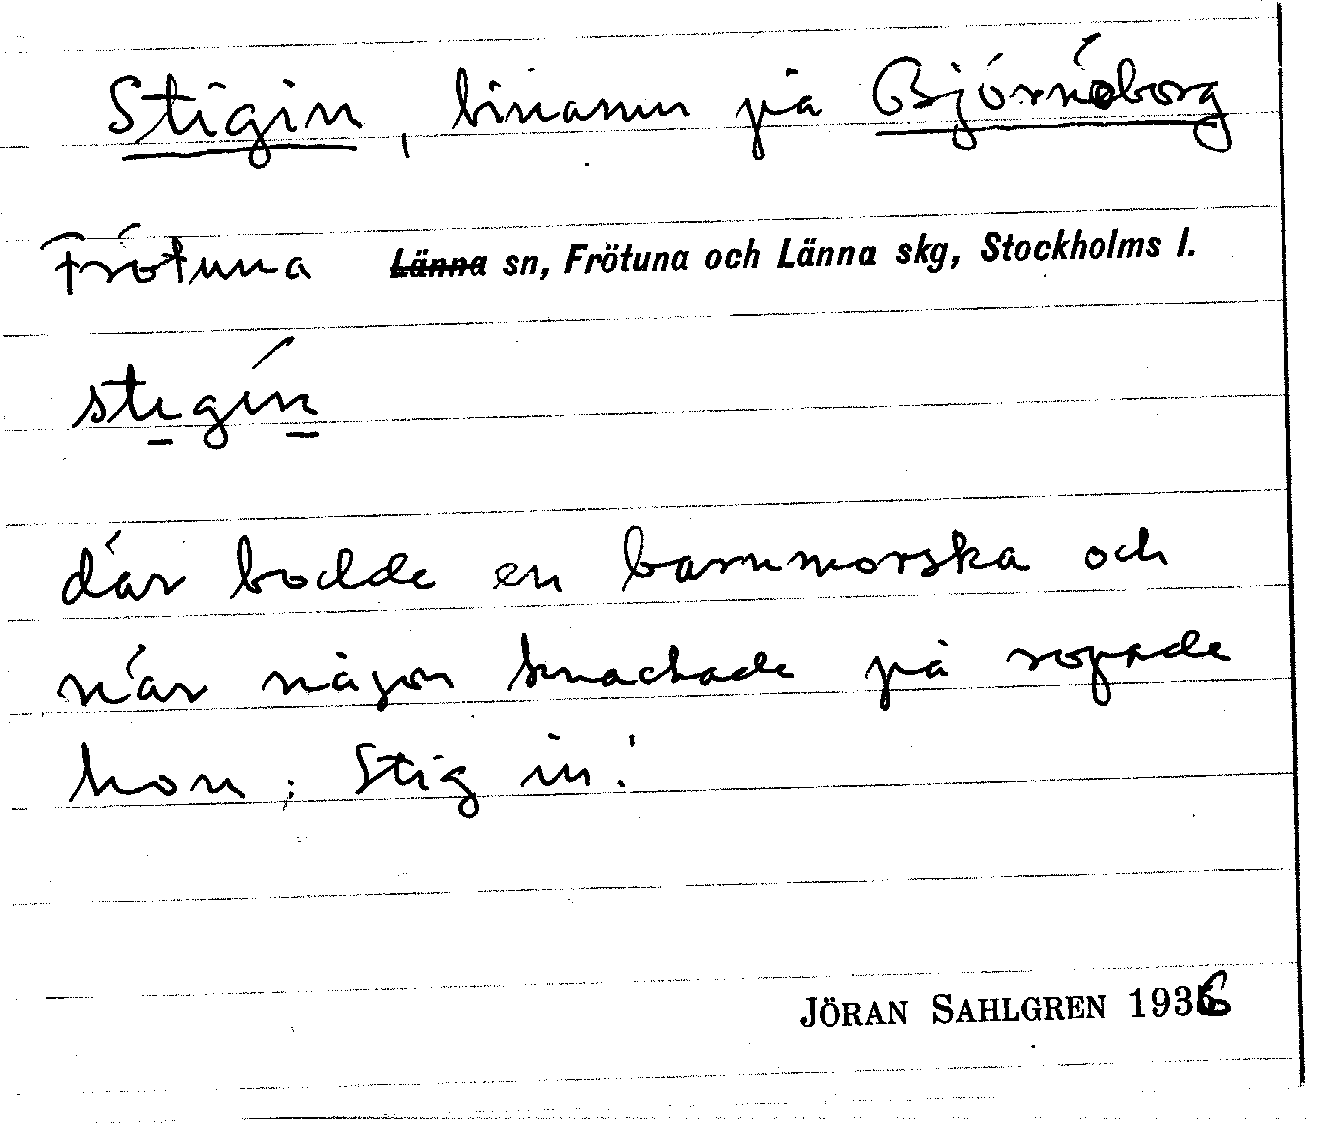 Stigin, binamn på Björnöborg
Frötuna ~~Länna~~ sn, Frötuna och Länna skg, Stockholms l.
stigín
där bodde en barnmorska och
när någon knackade på ropade
hon: Stig in!
JÖRAN SAHLGREN 1936